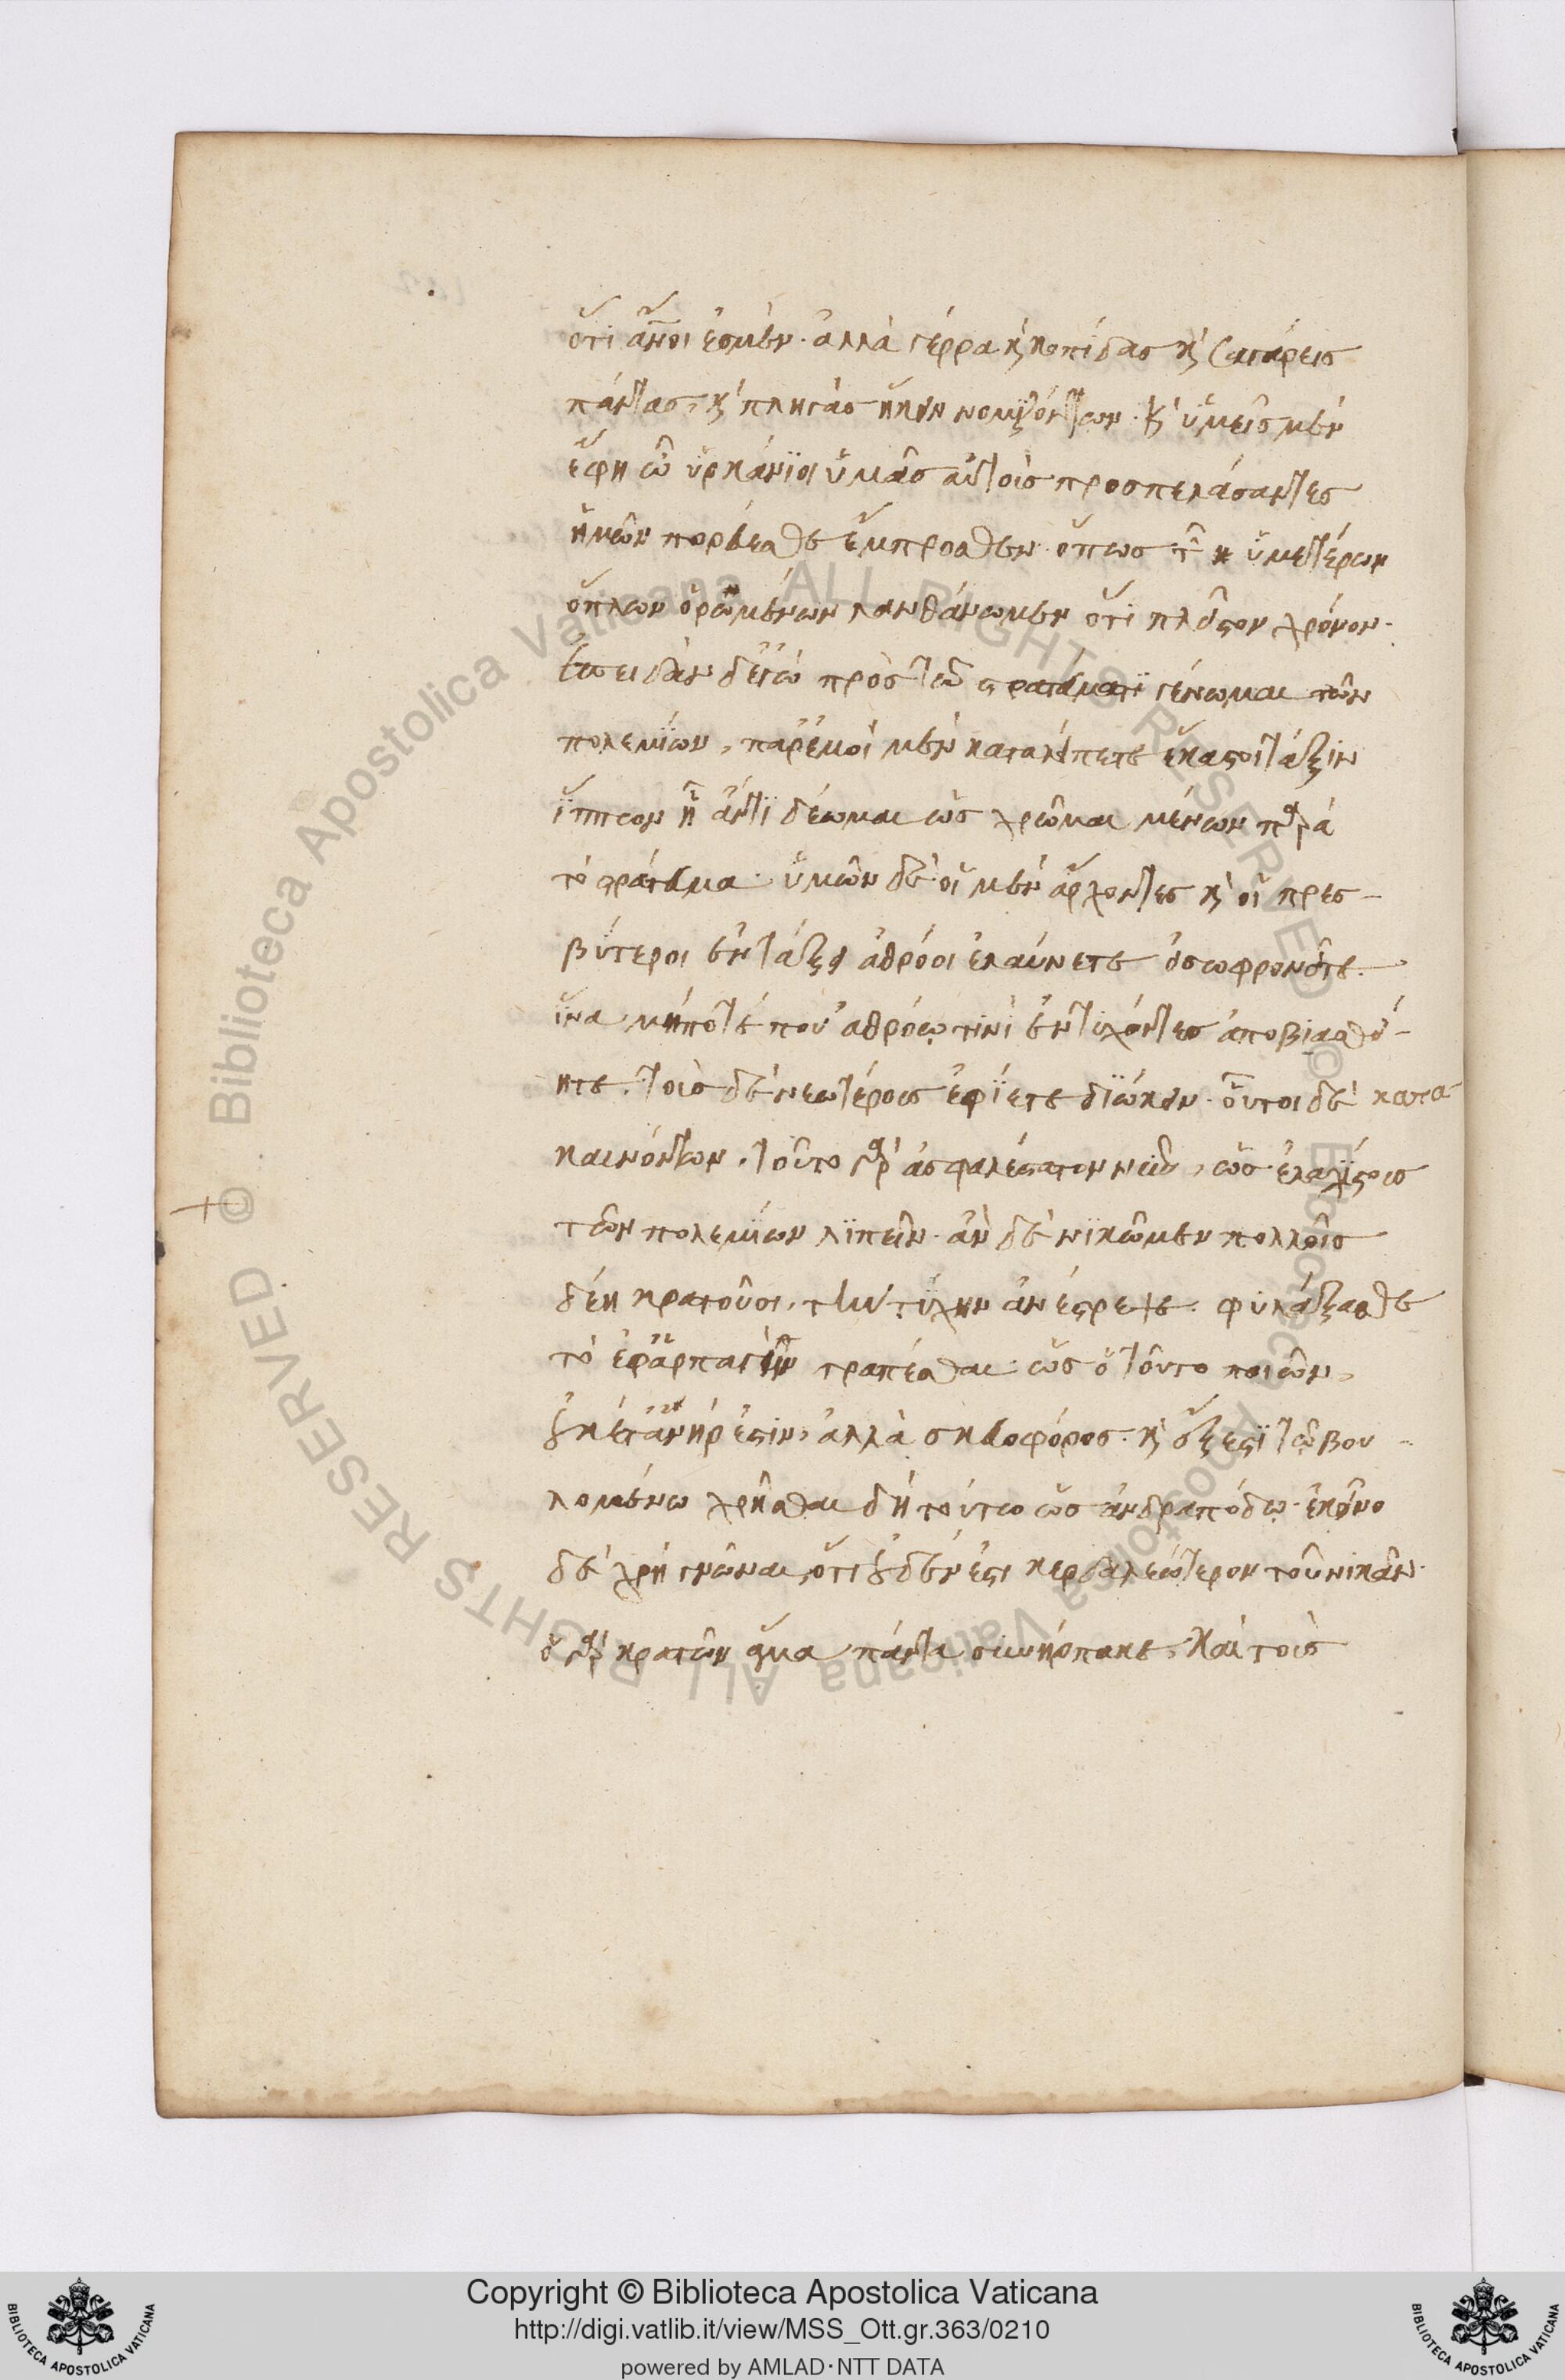 ὅτι ἄν̅οι ἐσμὲν· ἀλλὰ γέρρα κ̀ κοπίδας κ̀ σαγάρεις
πάντας, κ̀ πληγὰς ἥκειν νομιζόντων· κ̀ ὑμεῖς μὲν
ἔφη ὦ ὑρκάνϊοι ὑμᾶς αὐτοὶς προσπελάσαντες
ἡμῶν πορεύεσθε ἔμπροσθεν· ὅπως τῶν ὑμετέρων
ὅπλων ὁρωμένων λανθάνωμεν ὅτι πλεῖστον χρόνον·
ἐπειδὰν δ' ἐγὼ πρὸς τῶ στρατεύματϊ γένωμαι τῶν
πολεμίων, παρ' ἐμοὶ μὲν καταλείπετε ἕκαστοι τάξϊν
ἵππεων ἧ ἄντϊ δέωμαι ὡς χρῶμαι μένων παρὰ
τὸ στράτευμα· ὑμῶν δὲ οἱ μὲν ἄρχοντες κ̀ οἱ πρεσ-
βύτεροι ἐν τάξει ἀθρόοι ἐλαύνετε εἰ σωφρονεῖτε·
ἵνα μήποτέ που ἀθρόῳ τινὶ ἐντυχόντες ἀποβιασθεί-
ητε. τοὶς δὲ νεωτέροις ἐφίετε διώκειν· οὗτοι δὲ κατα
καινόντων. τοῦτο γὰρ ἀσφαλέστατον νῦν, ὡς ἐλαχίστοις
τῶν πολεμϊων λϊπεῖν· ἂν δὲ νϊκῶμεν πολλοῖς
δέη κρατοῦσι, τὴν τύχην ἀνέστρεψε. φυλάξασθε
τὸ ἐφ' ἁρπαγὴν τραπέσθαι· ὡς ὁ τοῦτο ποιῶν,
οὐκέτ' ἀνήρ ἐστιν, ἀλλὰ σκευοφόρος· κ̀ ἔξεστϊ τῶ βου-
λομένω χρῆσθαι δὴ τούτω ὡς ἀνδραπόδῳ· ἐκεῖνο
δὲ χρὴ γνῶναι, ὅτι οὐδέν ἐστι κερδαλεώτερον τοῦ νικᾶν·
ὁ γὰρ κρατῶν ἅμα πάντα συνήρπακε, καὶ τοὶς
Copyright © Biblioteca Apostolica Vaticana
http://digi.vatlib.it/view/MSS_Ott.gr.363/0210
powered by AMLAD·NTT DATA